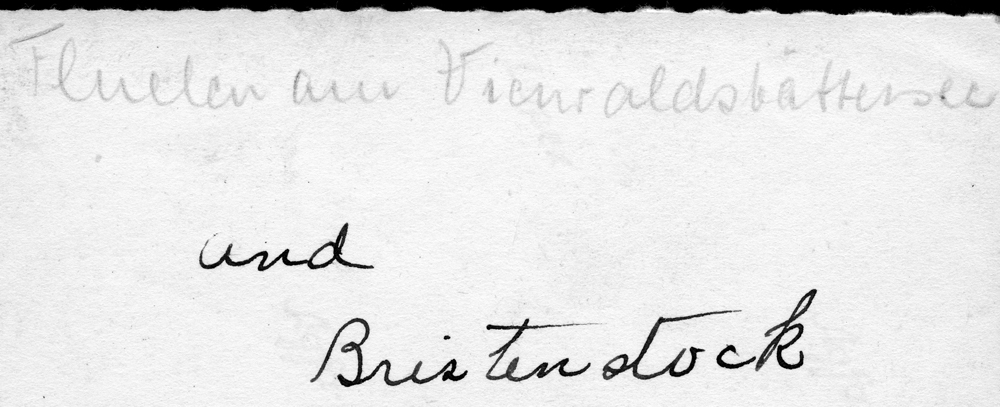 Fluelen am Vierwaldstättersee
und
Bristenstock